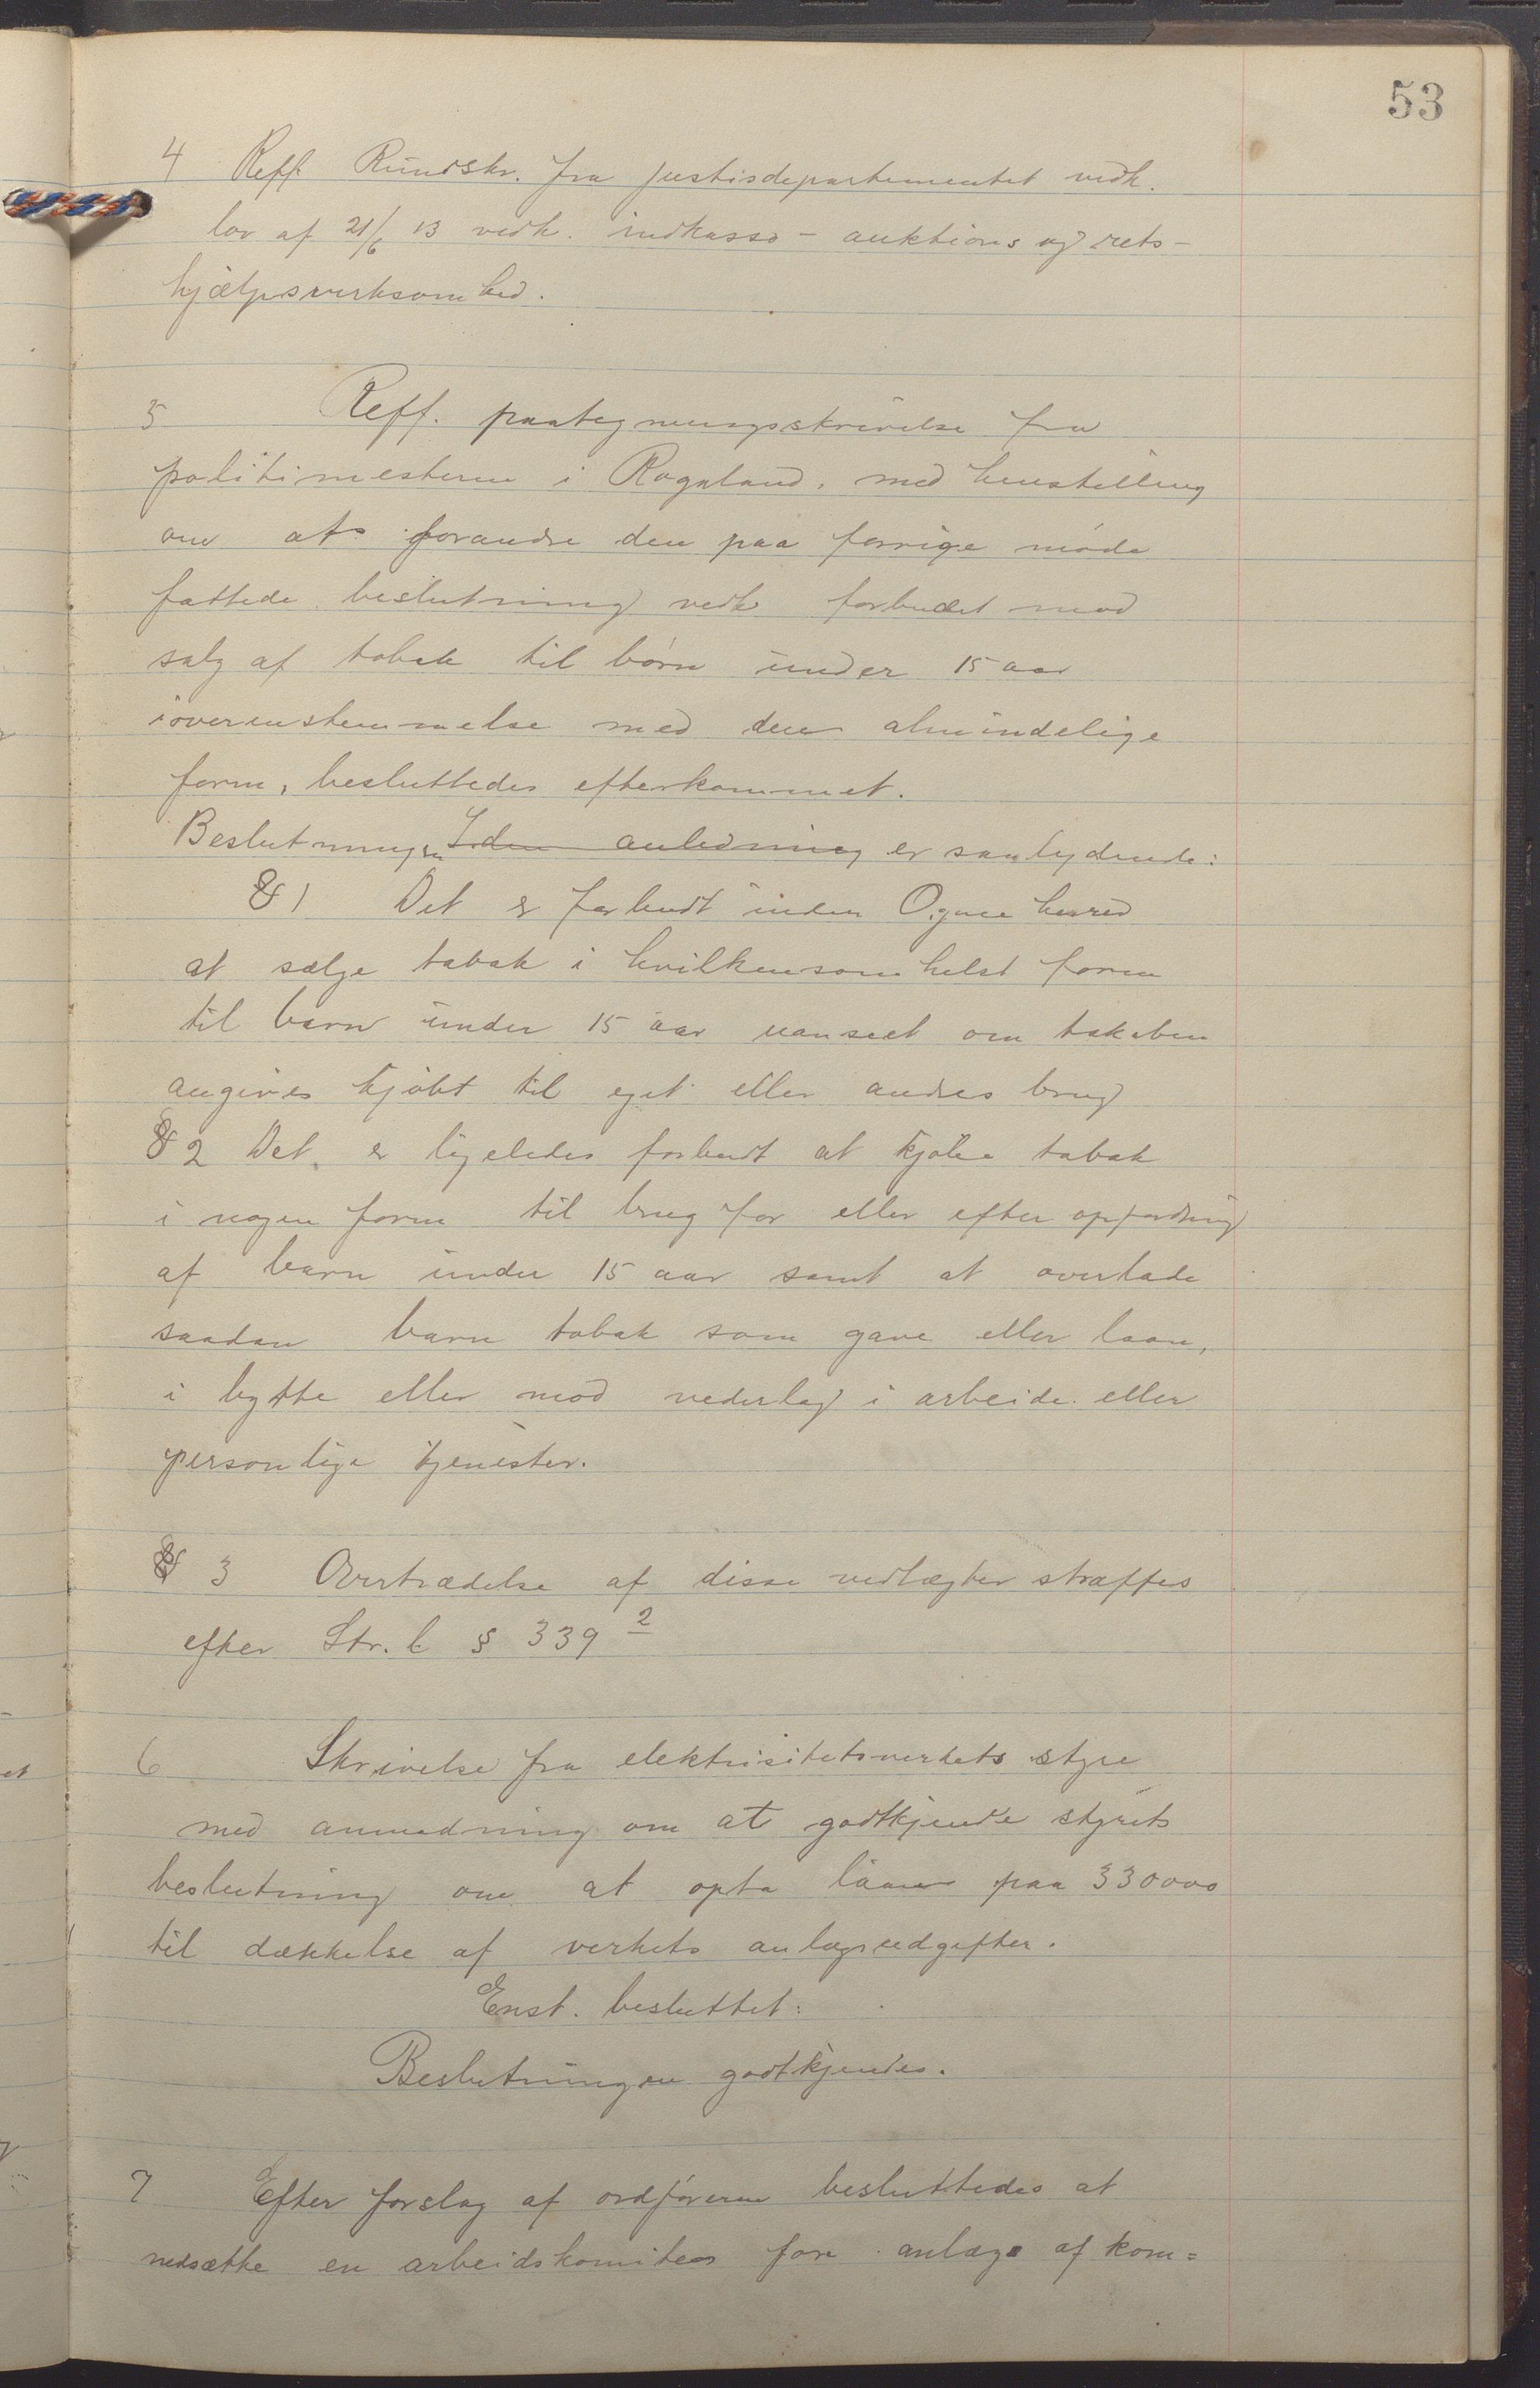 53
4 Reff. Rundskr. fra justisdepartementet vedk.
lov af 21/6 13 vedk. indkasso- auktions og rets-
hjælpsverksomhed.
5 Reff. paategningsskrivelse fra
politimesteren i Rogaland, med henstilling
om at forandre den paa forrige møde
fattede beslutning vedk forbudet mod
salg af tobak til børn under 15 aar
i overensstemmelse med den almindelige
form, besluttedes efterkommet.
Beslutningen I den anledning er saalydende:
§ 1 Det er forbudt inden Ogna herred
at sælge tabak i hvilkensomhelst form
til barn under 15 aar uanseet om tabaken
angives kjøbt til eget eller andres brug
§ 2 Det er ligeledes forbudt at kjøbe tabak
i nogen form til brug for eller efter opfordring
af barn under 15 aar samt at overlade
saadan barn tobak som gave eller laan,
i bytte eller mod vederlag i arbeide eller
personlige tjenester.
§ 3 Overtrædelse af disse vedtægter straffes
efter Str. l § 339 2
6 Skrivelse fra elektrisitetsverkets styre
med anmodning om at godtkjende styrets
beslutning om at opta laan paa 330000
til dækkelse af verkets anlægsudgifter.
Enst. besluttet:
Beslutningen godtkjendes.
7 Efter forslag af ordføreren besluttedes at
nedsætte en arbeidskomitee for anlæg af kom=